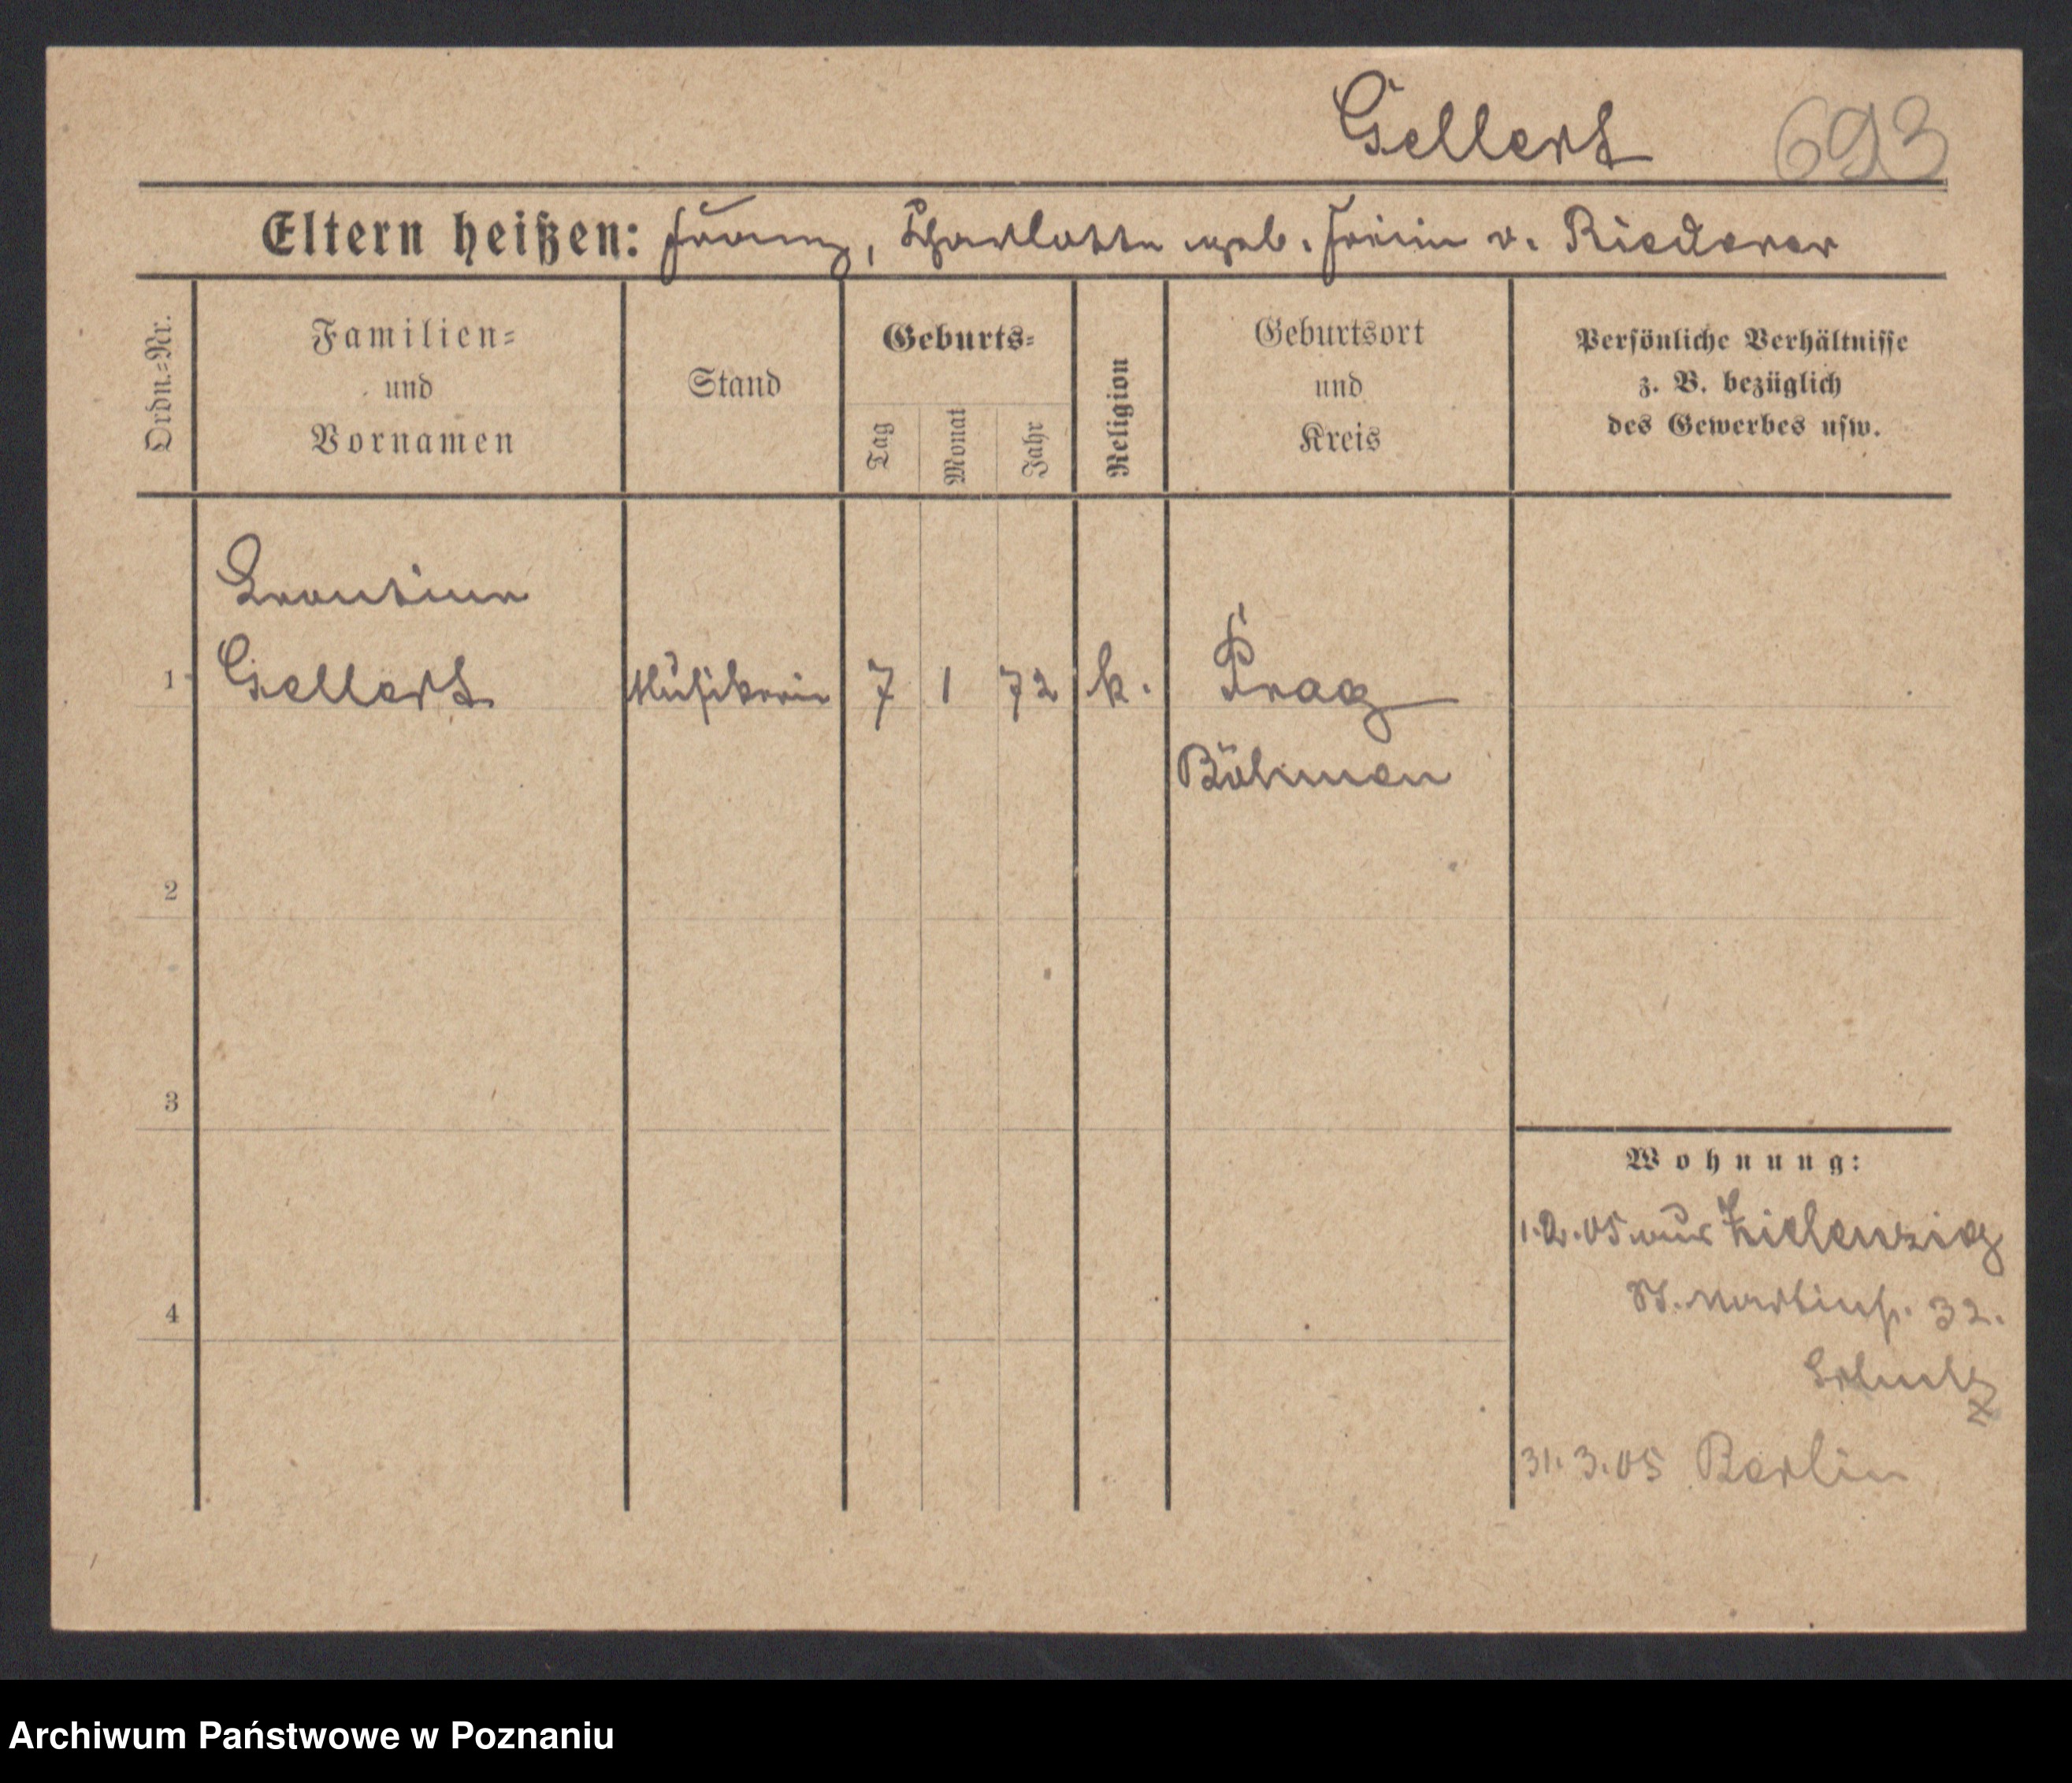 Gellert 693
Eltern heißen: Franz, Charlotte geb. Freiin v. Riederer
Ordn.-Nr.
Familien-
und
Vornamen
Stand
Geburts-
Tag
Monat
Jahr
Religion
Geburtsort
und
Kreis
Persönliche Verhältnisse
z. B. bezüglich
des Gewerbes usw.
Leontine
1 Gellert Musikerin 7 1 72 k. Prag
Böhmen
2
3
Wohnung:
1.2.05 aus Zielenzig
4 St. Martinstr. 32.
31.3.05 Berlin
Archiwum Państwowe w Poznaniu